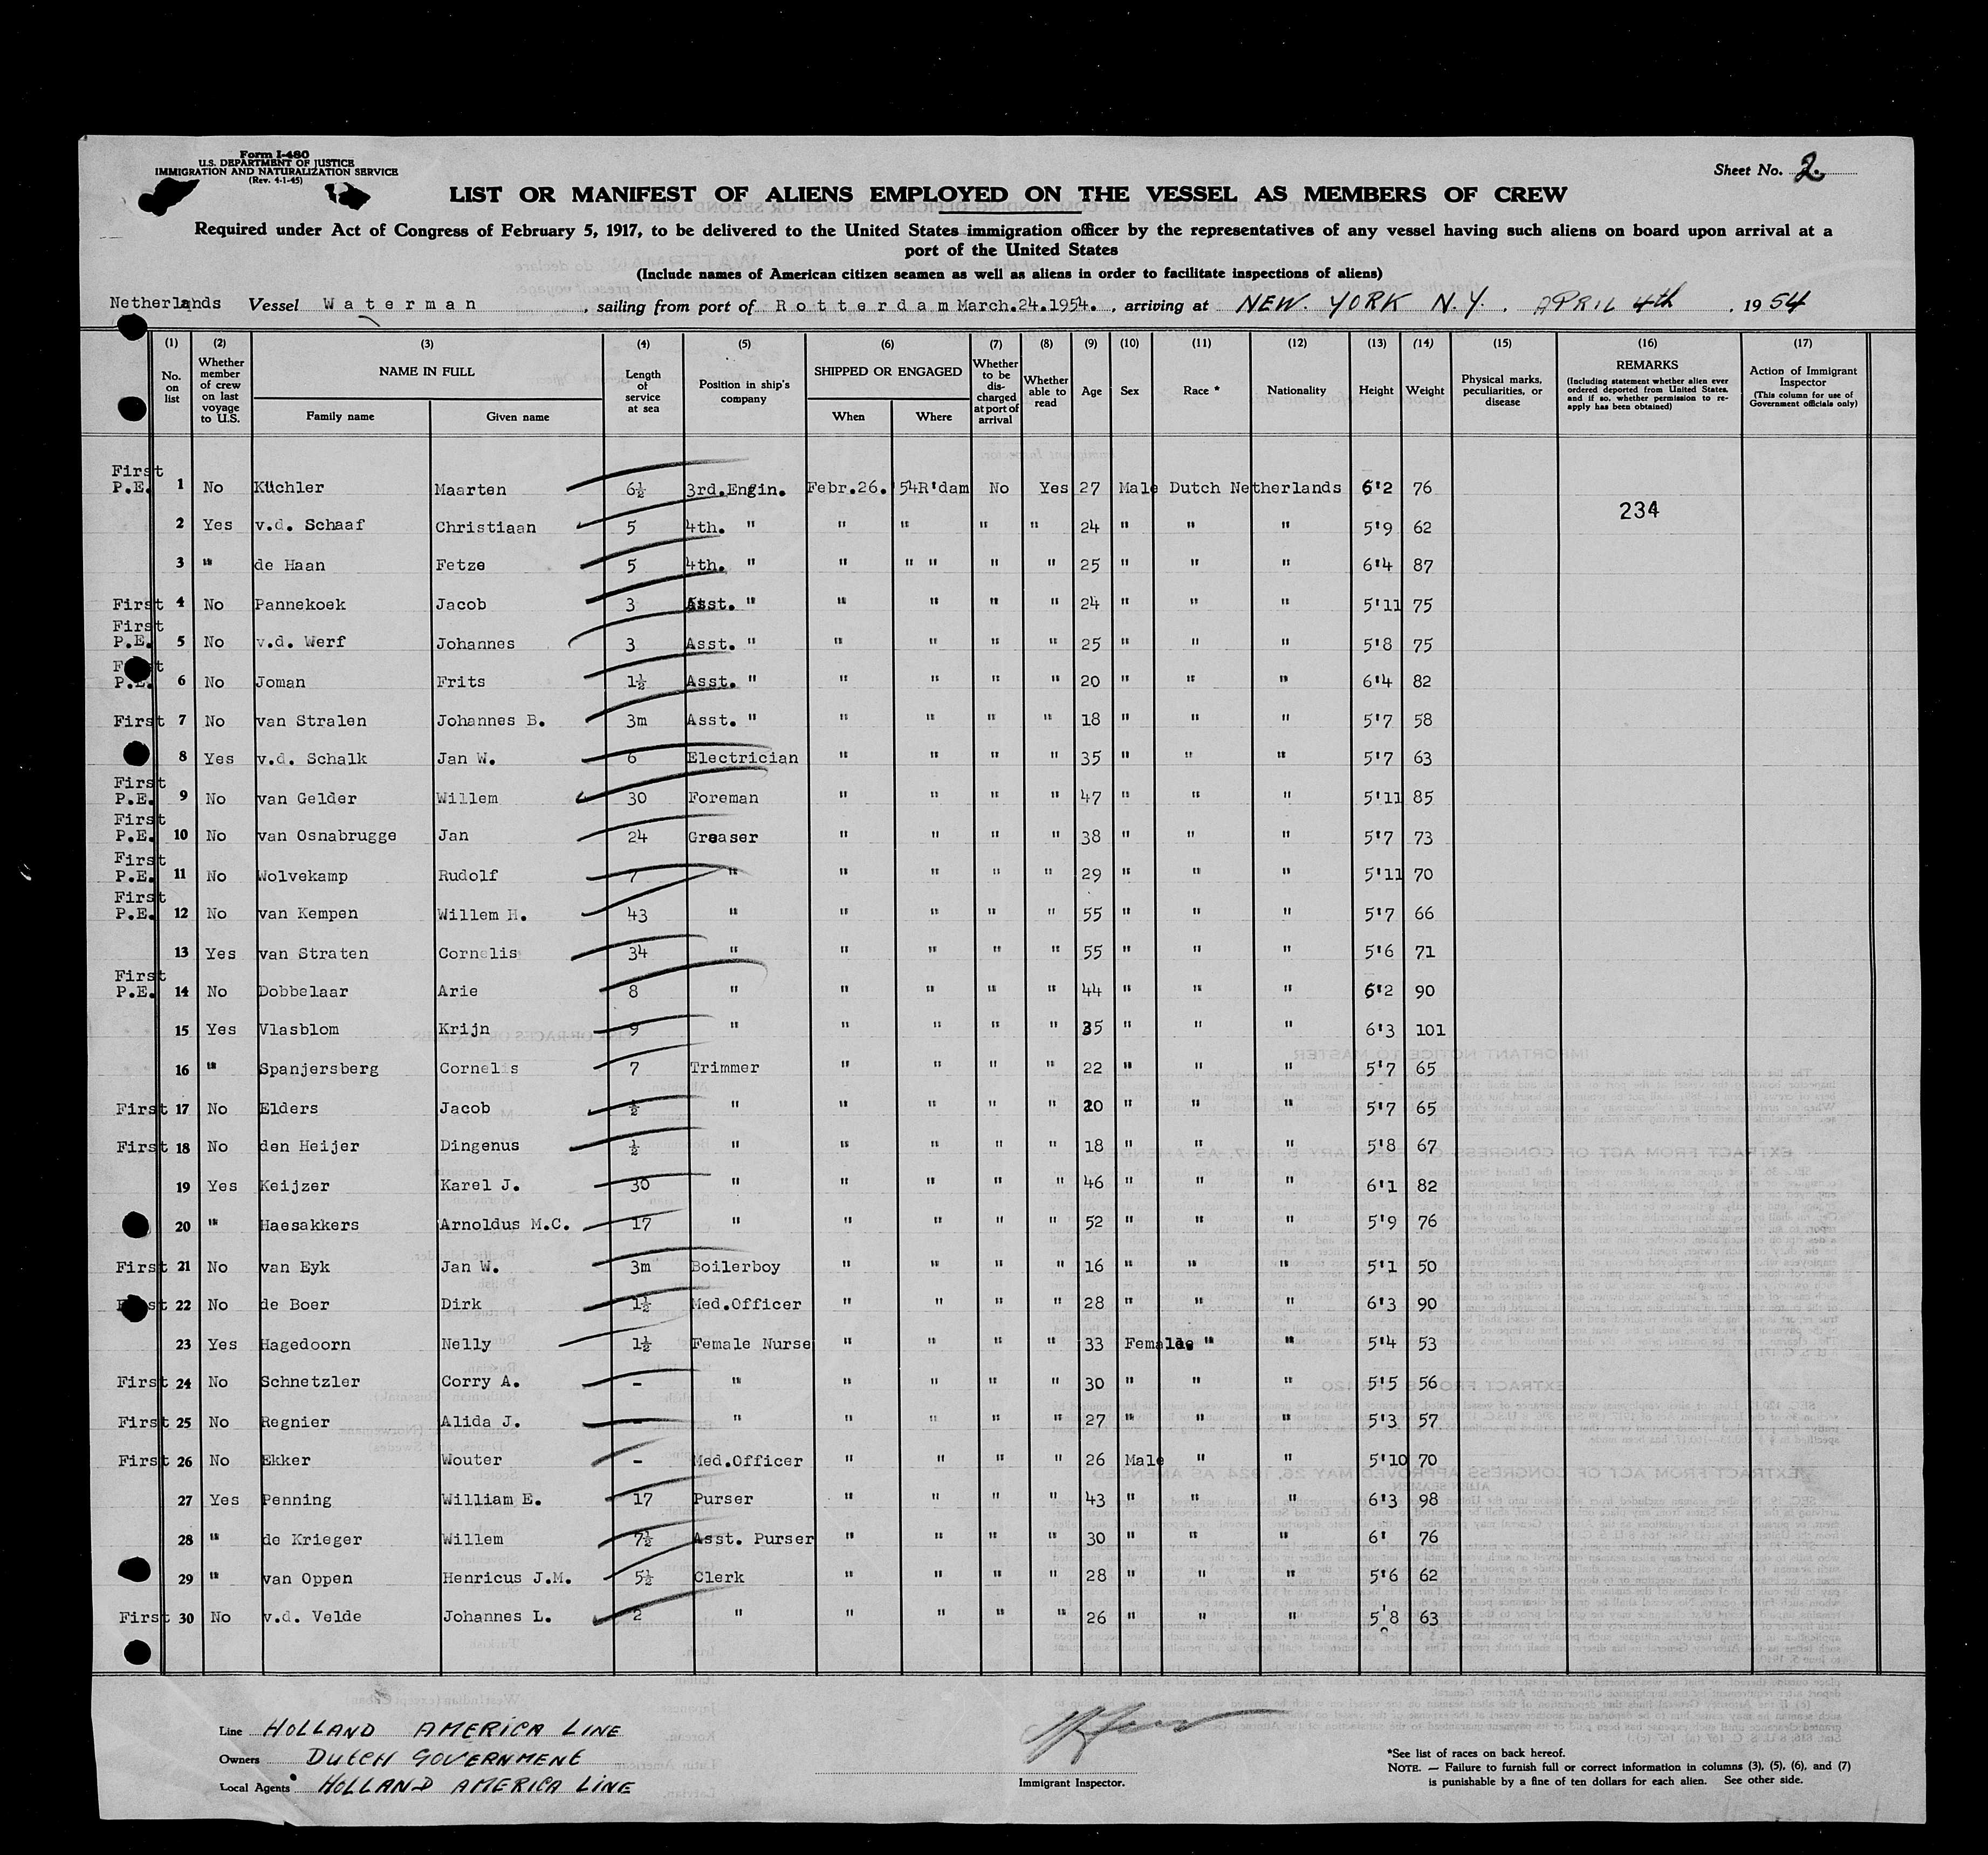 Form I-480
U.S. DEPARTMENT OF JUSTICE
IMMIGRATION AND NATURALIZATION SERVICE
(Rev. 4-1-45)
Sheet No. 2.
LIST OR MANIFEST OF ALIENS EMPLOYED ON THE VESSEL AS MEMBERS OF CREW
Required under Act of Congress of February 5, 1917, to be delivered to the United States immigration officer by the representatives of any vessel having such aliens on board upon arrival at a
port of the United States
(Include names of American citizen seamen as well as aliens in order to facilitate inspections of aliens)
Netherlands Vessel Waterman, sailing from port of Rotterdam March.24.1954., arriving at NEW. YORK N.Y. APRIL 4th, 1954
(1) (2) (3) (4) (5) (6) (7) (8) (9) (10) (11) (12) (13) (14) (15) (16) (17)
No. on list
Whether member of crew on last voyage to U.S.
NAME IN FULL
Family name Given name
Length of service at sea
Position in ship's company
SHIPPED OR ENGAGED
When Where
Whether to be discharged at port of arrival
Whether able to read
Age
Sex
Race *
Nationality
Height
Weight
Physical marks, peculiarities, or disease
REMARKS
(Including statement whether alien ever ordered deported from United States, and if so, whether permission to reapply has been obtained)
Action of Immigrant Inspector
(This column for use of Government officials only)
First P.E. 1 No Küchler Maarten 6½ 3rd.Engin. Febr.26.'54 R'dam No Yes 27 Male Dutch Netherlands 6'2 76
234
2 Yes v.d. Schaaf Christiaan 5 4th. " " " " " 24 " " " 5'9 62
3 " de Haan Fetze 5 4th. " " " " " " 25 " " " 6'4 87
First 4 No Pannekoek Jacob 3 Asst. " " " " " 24 " " " 5'11 75
First P.E. 5 No v.d. Werf Johannes 3 Asst. " " " " " 25 " " " 5'8 75
First P.E. 6 No Joman Frits 1½ Asst. " " " " " 20 " " " 6'4 82
First 7 No van Stralen Johannes B. 3m Asst. " " " " " 18 " " " 5'7 58
8 Yes v.d. Schalk Jan W. 6 Electrician " " " " 35 " " " 5'7 63
First P.E. 9 No van Gelder Willem 30 Foreman " " " " 47 " " " 5'11 85
First P.E. 10 No van Osnabrugge Jan 24 Greaser " " " " 38 " " " 5'7 73
First P.E. 11 No Wolvekamp Rudolf 7 " " " " " 29 " " " 5'11 70
First P.E. 12 No van Kempen Willem H. 43 " " " " " 55 " " " 5'7 66
13 Yes van Straten Cornelis 34 " " " " " 55 " " " 5'6 71
First P.E. 14 No Dobbelaar Arie 8 " " " " " 44 " " " 6'2 90
15 Yes Vlasblom Krijn 9 " " " " " 35 " " " 6'3 101
16 " Spanjersberg Cornelis 7 Trimmer " " " " 22 " " " 5'7 65
First 17 No Elders Jacob ½ " " " " " 20 " " " 5'7 65
First 18 No den Heijer Dingenus ½ " " " " " 18 " " " 5'8 67
19 Yes Keijzer Karel J. 30 " " " " " 46 " " " 6'1 82
20 " Haesakkers Arnoldus M.C. 17 " " " " " 52 " " " 5'9 76
First 21 No van Eyk Jan W. 3m Boilerboy " " " " 16 " " " 5'1 50
First 22 No de Boer Dirk 1½ Med.Officer " " " " 28 " " " 6'3 90
23 Yes Hagedoorn Nelly 1½ Female Nurse " " " " 33 Female " " 5'4 53
First 24 No Schnetzler Corry A. - " " " " " 30 " " " 5'5 56
First 25 No Regnier Alida J. - " " " " " 27 " " " 5'3 57
First 26 No Ekker Wouter - Med.Officer " " " " 26 Male " " 5'10 70
27 Yes Penning William E. 17 Purser " " " " 43 " " " 6'3 98
28 " de Krieger Willem 7½ Asst. Purser " " " " 30 " " " 6' 76
29 " van Oppen Henricus J.M. 5½ Clerk " " " " 28 " " " 5'6 62
First 30 No v.d. Velde Johannes L. 2 " " " " " 26 " " " 5'8 63
Line HOLLAND AMERICA LINE
Owners DUTCH GOVERNMENT
Local Agents HOLLAND AMERICA LINE
Immigrant Inspector.
*See list of races on back hereof.
NOTE. — Failure to furnish full or correct information in columns (3), (5), (6), and (7)
is punishable by a fine of ten dollars for each alien. See other side.